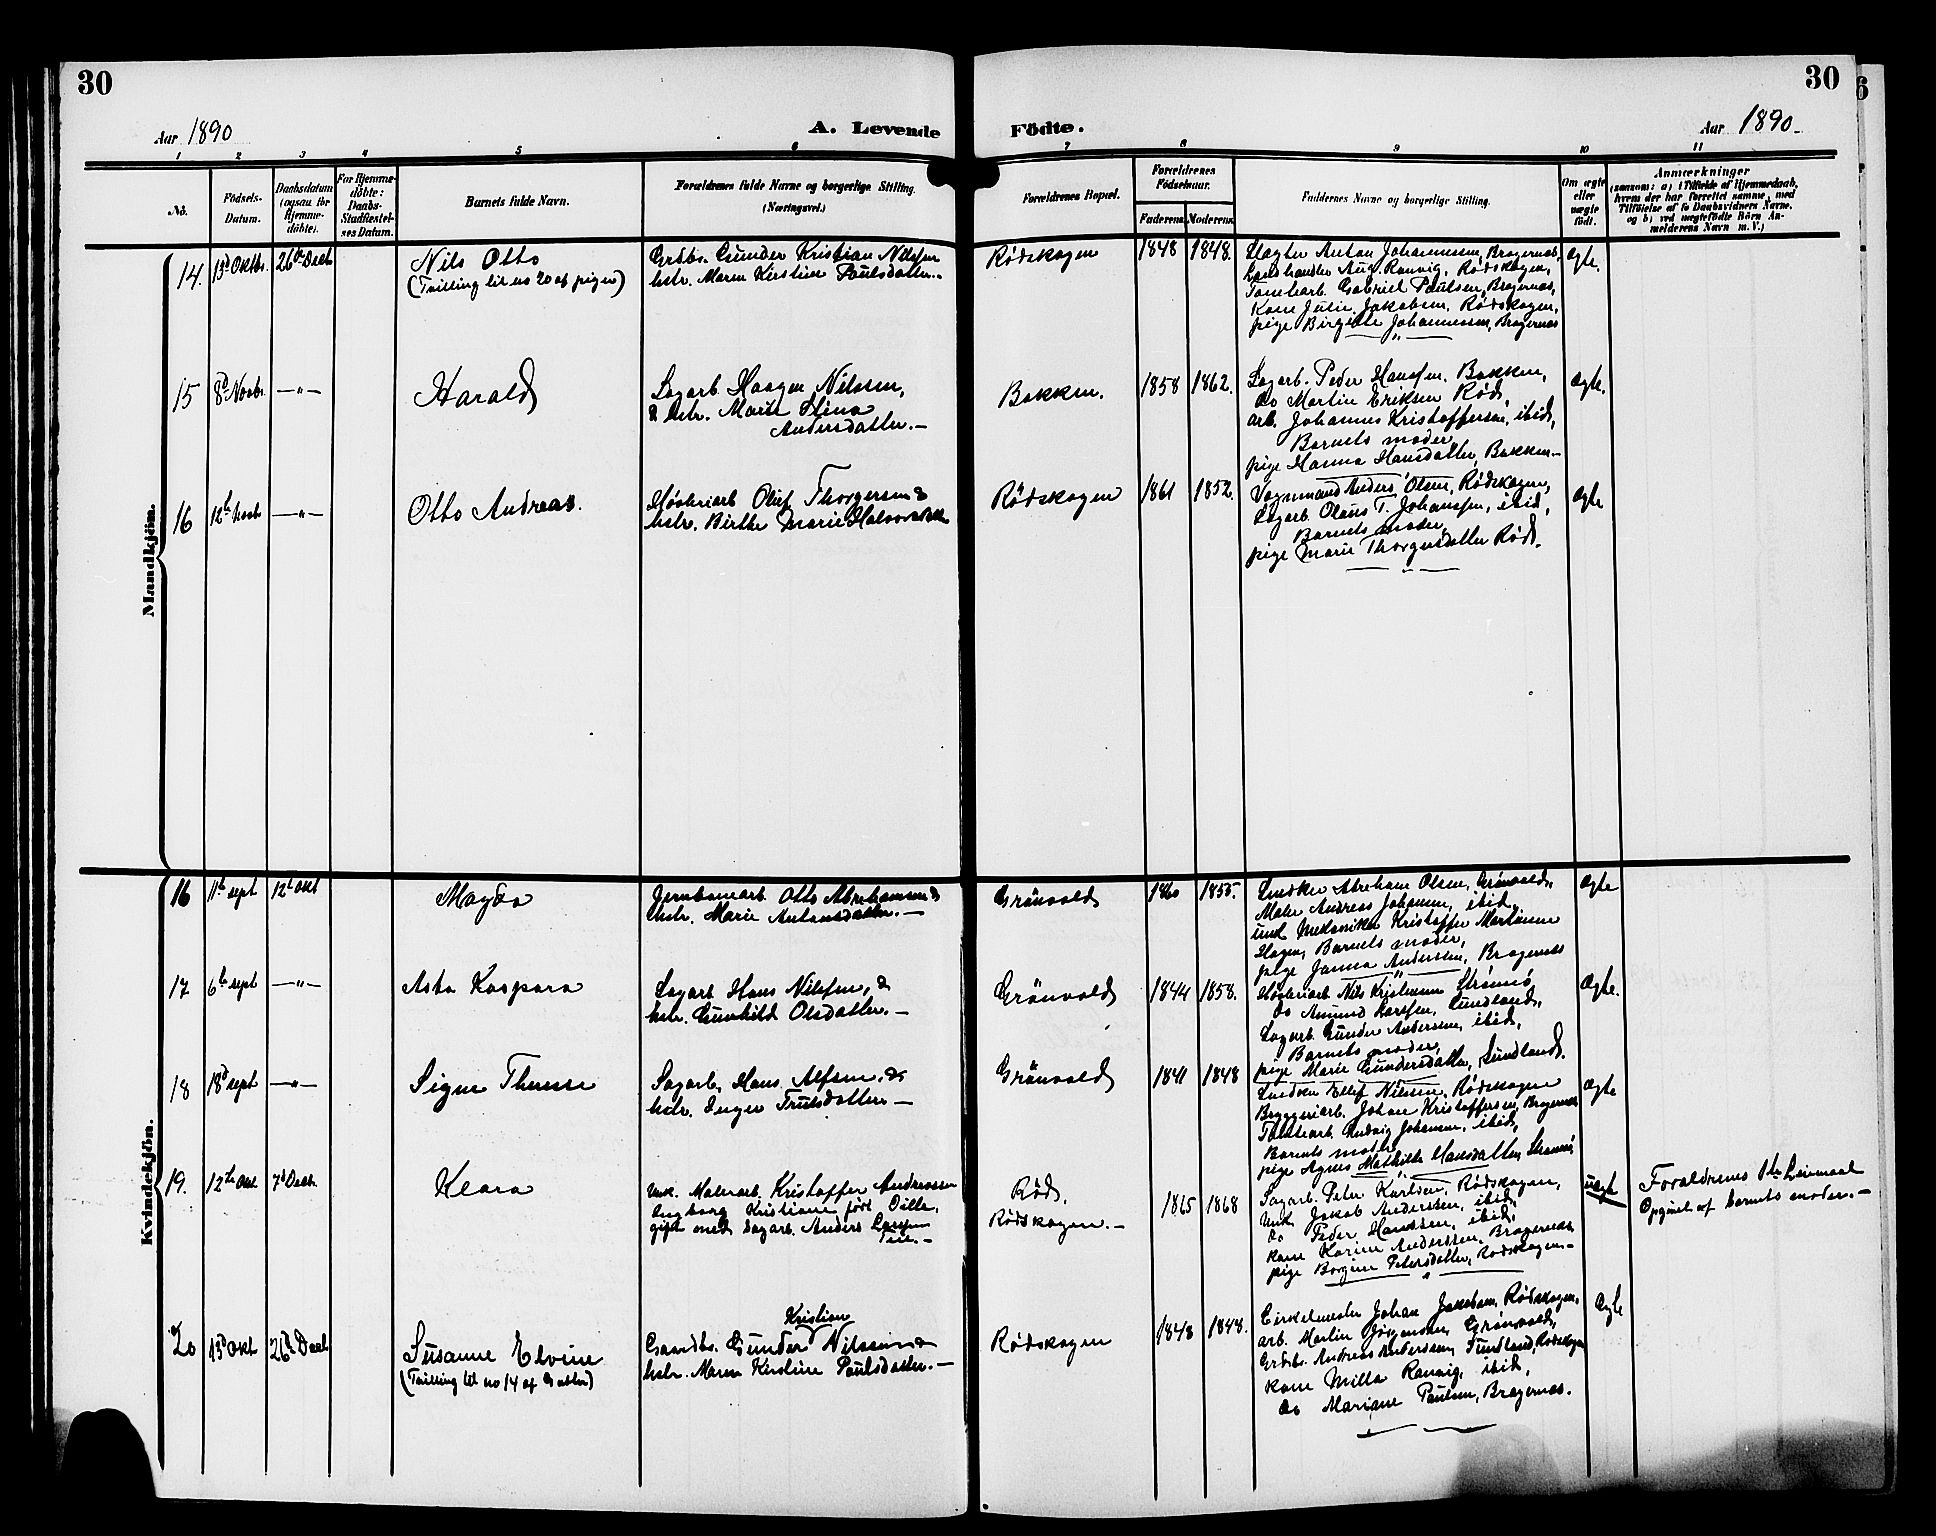 30
30
Aar 1890
A. Levende
Födte.
Aar 1890
1 2 3 4 5 6 7 8 9 10 11
No.
Födsels-
Datum.
Daabsdatum
(ogsaa for
Hjemme-
döbte).
For Hjemme-
döbte:
Daabs-
Stadfæstel-
ses Datum.
Barnets fulde Navn.
Forældrenes fulde Navne og borgerlige Stilling.
(Næringsvei.)
Forældrenes Bopæl.
Forældrenes
Födselsaar.
Faderens
Moderens
Faddernes Navne og borgerlige Stilling.
Om ægte
eller
uægte
födt.
Anmærkninger
(saasom: a) i Tilfælde af Hjemmedaab,
hvem der har forrettet samme, med
Tilföielse af to Daabsvidners Navne,
og b) ved uægtefödte Börn An-
melderens Navn m. V.)
Mandkjön.
14. 13d Oktbr. 26de Decb
Nils Otto
(Tvilling til no 20 af piger)
Grdbr. Gunder Kristian Nilssen
hstr. Maren Kirstine Paulsdatter.
Rødskogen
1848 1848.
Slagter Anton Johannessen, Bragernæs,
Landhandler Aug. Ranvig, Rødskogen,
Gabriel Paulsen, Bragernæs,
Kone Julie Jakobsen, Rødskogen,
pige Birgitte Johannessen, Bragernæs
ægte.
15 8d Novbr. — " —
Harald
Sagarb Haagen Nilssen,
& hstr. Marie Stina
Andersdatter.
Bakken.
1858 1862.
Sagarb. Peder Hanssen, Bakken,
do Martin Eriksen Rød,
arb. Johannes Kristoffersen, ibid,
Barnets moder,
pige Hanna Hansdatter, Bakken
ægte.
16 12te Novb — " —
Otto Andreas.
Høvleriarb Oluf Thorgersen &
hstr. Birthe Marie Halvorsdatter
Rødskogen
1861 1852.
Vognmand Anders Olsen, Rødskogen,
Sagarb. Olaus T. Johanssen, ibid,
Barnets moder,
pige Marie Thorgersdatter Rød.
ægte
Kvindekjön.
16 11te sept 12te Okt
Magda
Jernbanearb Otto Abrahamsen &
hstr. Marie Antonsdatter.
Grönvold
1860 1855.
Snedker Abraham Olsen, Grönvold,
Maler Andreas Johansen, ibid,
unk Mekaniker Kristoffer Martinsen
Hagen, Barnets moder,
pige Janna Anderssen, Bragernæs
ægte
17 6te sept — " —
Asta Kaspara
Sagarb Hans Nilssen, &
hstr. Gunhild Olsdatter.
Grönvold
1844 1858.
Høvleriarb Nils Kristiansen Strømsø,
do Amund Larssen, Sundland,
Sagarb. Gunder Anderssen, ibid,
Barnets moder,
pige Marie Gundersdatter, Sundland.
ægte.
18 18d sept — " —
Signe Therese
Sagarb. Hans Alfsen, &
hstr. Inger Trulsdatter
Grönvold
1841 1848
Snedker Ellef Nilssen, Rødskogen
Bryggeriarb. Johan Kristoffersen, Bragernæs
Ludvig Johansen, ibid,
Barnets moder
pige Agnes Mathilde Hansdatter, Strømsø
ægte
19. 12te Okt 7d Decb.
Klara
unk. Malerarb. Kristoffer Andreassen
Ingborg Kristiane født Oille,
gift med sagarb. Anders Larssen
Rød,
Rødskogen.
1865 1868
Sagarb. Peter Karlsen, Rødskogen,
unk Jakob Anderssen, ibid,
do Peder Hanssen, ibid,
kone Karine Anderssen, Bragernæs,
pige Borgine Petersdatter, Rødskogen
uægte
Forældrenes 1te Leiermaal
Opgivet af barnets moder.
20 13d Okt 26de Decb
Susanne Elvine
(Tvilling til no 14 af Gutter)
Kristian
Gaardbr. Gunder Nilssen &
hstr. Maren Kirstine Paulsdatter.
Rødskogen
1848 1848.
Cirkelmester Johan Jakobsen, Rødskogen,
arb. Martin Jørgensen, Grönvold,
Grdbr. Andreas Anderssen, Sundland, Rødskogen
kone Milla Ranvig, ibid,
do Mariane Paulsen, Bragernæs.
ægte